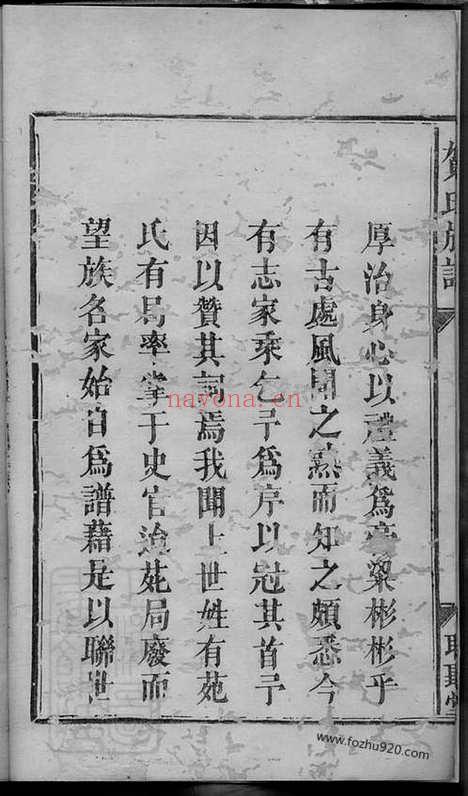 賀氏族譜
厚治身心以禮義爲膏粱彬彬乎
有古處風聞之熟而知之頗悉今
有志家乘乞予爲序以冠其首予
因以贊其詞焉我聞上世姓有苑
氏有局率掌于史官治苑局廢而
望族名家始自爲譜藉是以聯世
nayona.cn
www.fozhu920.com